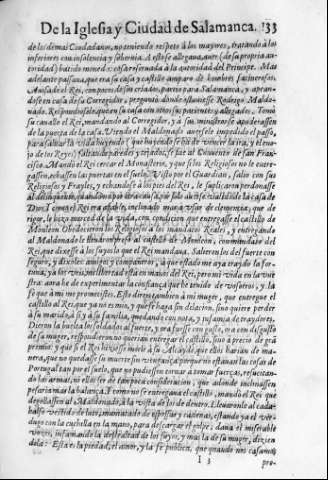 De la Iglesia y Ciudad de Salamanca. 133
de los demas Ciudadanos, no teniendo respeto à los mayores, tratando à los
inferiores con insolencia y sobervia. A esto se allegava, aver (de su propria au-
toridad) batido moneda: cosa reservada à la autoridad del Principe. Mas
adelante passava, que era su casa y castillo amparo de hombres facinerosos.
Avisado el Rey, compuesto de sus criados, partio para Salamanca, y apean-
dose en casa de su Corregidor, preguntò donde estuviesse Rodrigo Maldo-
nado. Respondiosele que en su casa con otros sus parientes y allegados. Tomò
su cavallo el Rey, mandando al Corregidor, y à sus ministros se apoderassen
de la puerta de la casa. Viendo el Maldonado averse le impedido el passo,
para salvar la vida huyendo (que huyendo se ha de vencer la ira, y el eno-
jo de los Reyes) saltando paredes y tejados, se fue al Convento de san Fran-
cisco. Mandò el Rey cercar el Monasterio, y que si los Religiosos no le entre-
gassen, echassen las puertas en el suelo. Visto por el Guardian, saliò con sus
Religiosos y Frayles, y echandose à los pies del Rey, le suplicaron perdonasse
al delinquente,
Dios. Como el Rey era afable, inclinado mas à usar de clemencia, que de
rigor, le hizo merced de la vida, con condicion que entregasse el castillo de
Monleon. Obedecieron los Religiosos à los mandatos Reales, y entregando
al Maldonado le llevaron preso al castillo de Monleon, conminado del
Rey, que dixesse à los suyos lo que el Rey mandava. Salieron los del fuerte con
seguro, y dixoles: amigos y compañeros, à que estado me aya traydo la for-
tuna, ya los veis, mi libertad està en manos del Rey, pero mi vida en la vue-
stra: aora he de experimentar la confiança que he tenido de vosotros, y la
fe que à mi me prometistes. Esto direis tambien à mi muger, que entregue el
castillo al Rey, que ya no es mio, y que se haga sin dilacion, sino quiere perder
à su marido, à sì y à su familia, quedando con nota, y infamia de traydores.
Dieron la buelta los soldados al fuerte, y ora fuesse con gusto, ora con disgusto
de su muger, respondieron no querian entregar el castillo, sino à precio de grã
premio: y que si el Rey hiziesse morir à su Alcayde, que ellos harian de ma-
nera, que no quedasse su muerte sin vengança: porque no estavan lexos de
Portugal tan por el suelo, que no pudiessen tornar à tomar fuerças, resucitan-
do las armas, ni ellos ser de tan poca consideracion, que adonde inclinassen
pesaria mas la balança. Y como no se entregava el castillo, mandò el Rey que
degollassen al Maldonado, à la vista de los de dentro. Llevaronle al cada-
halso vestido de luto, maniatado de esposas y cadenas, estando ya el ver-
dugo con la cuchilla en la mano, para descargar el golpe, dava el miserable
vozes, infamando la deslealtad de los suyos, y mas la de su muger, dizien
dola: Esta es la piedad, el amor, y la fe publica, que quando nos casamos
I 3
pro-